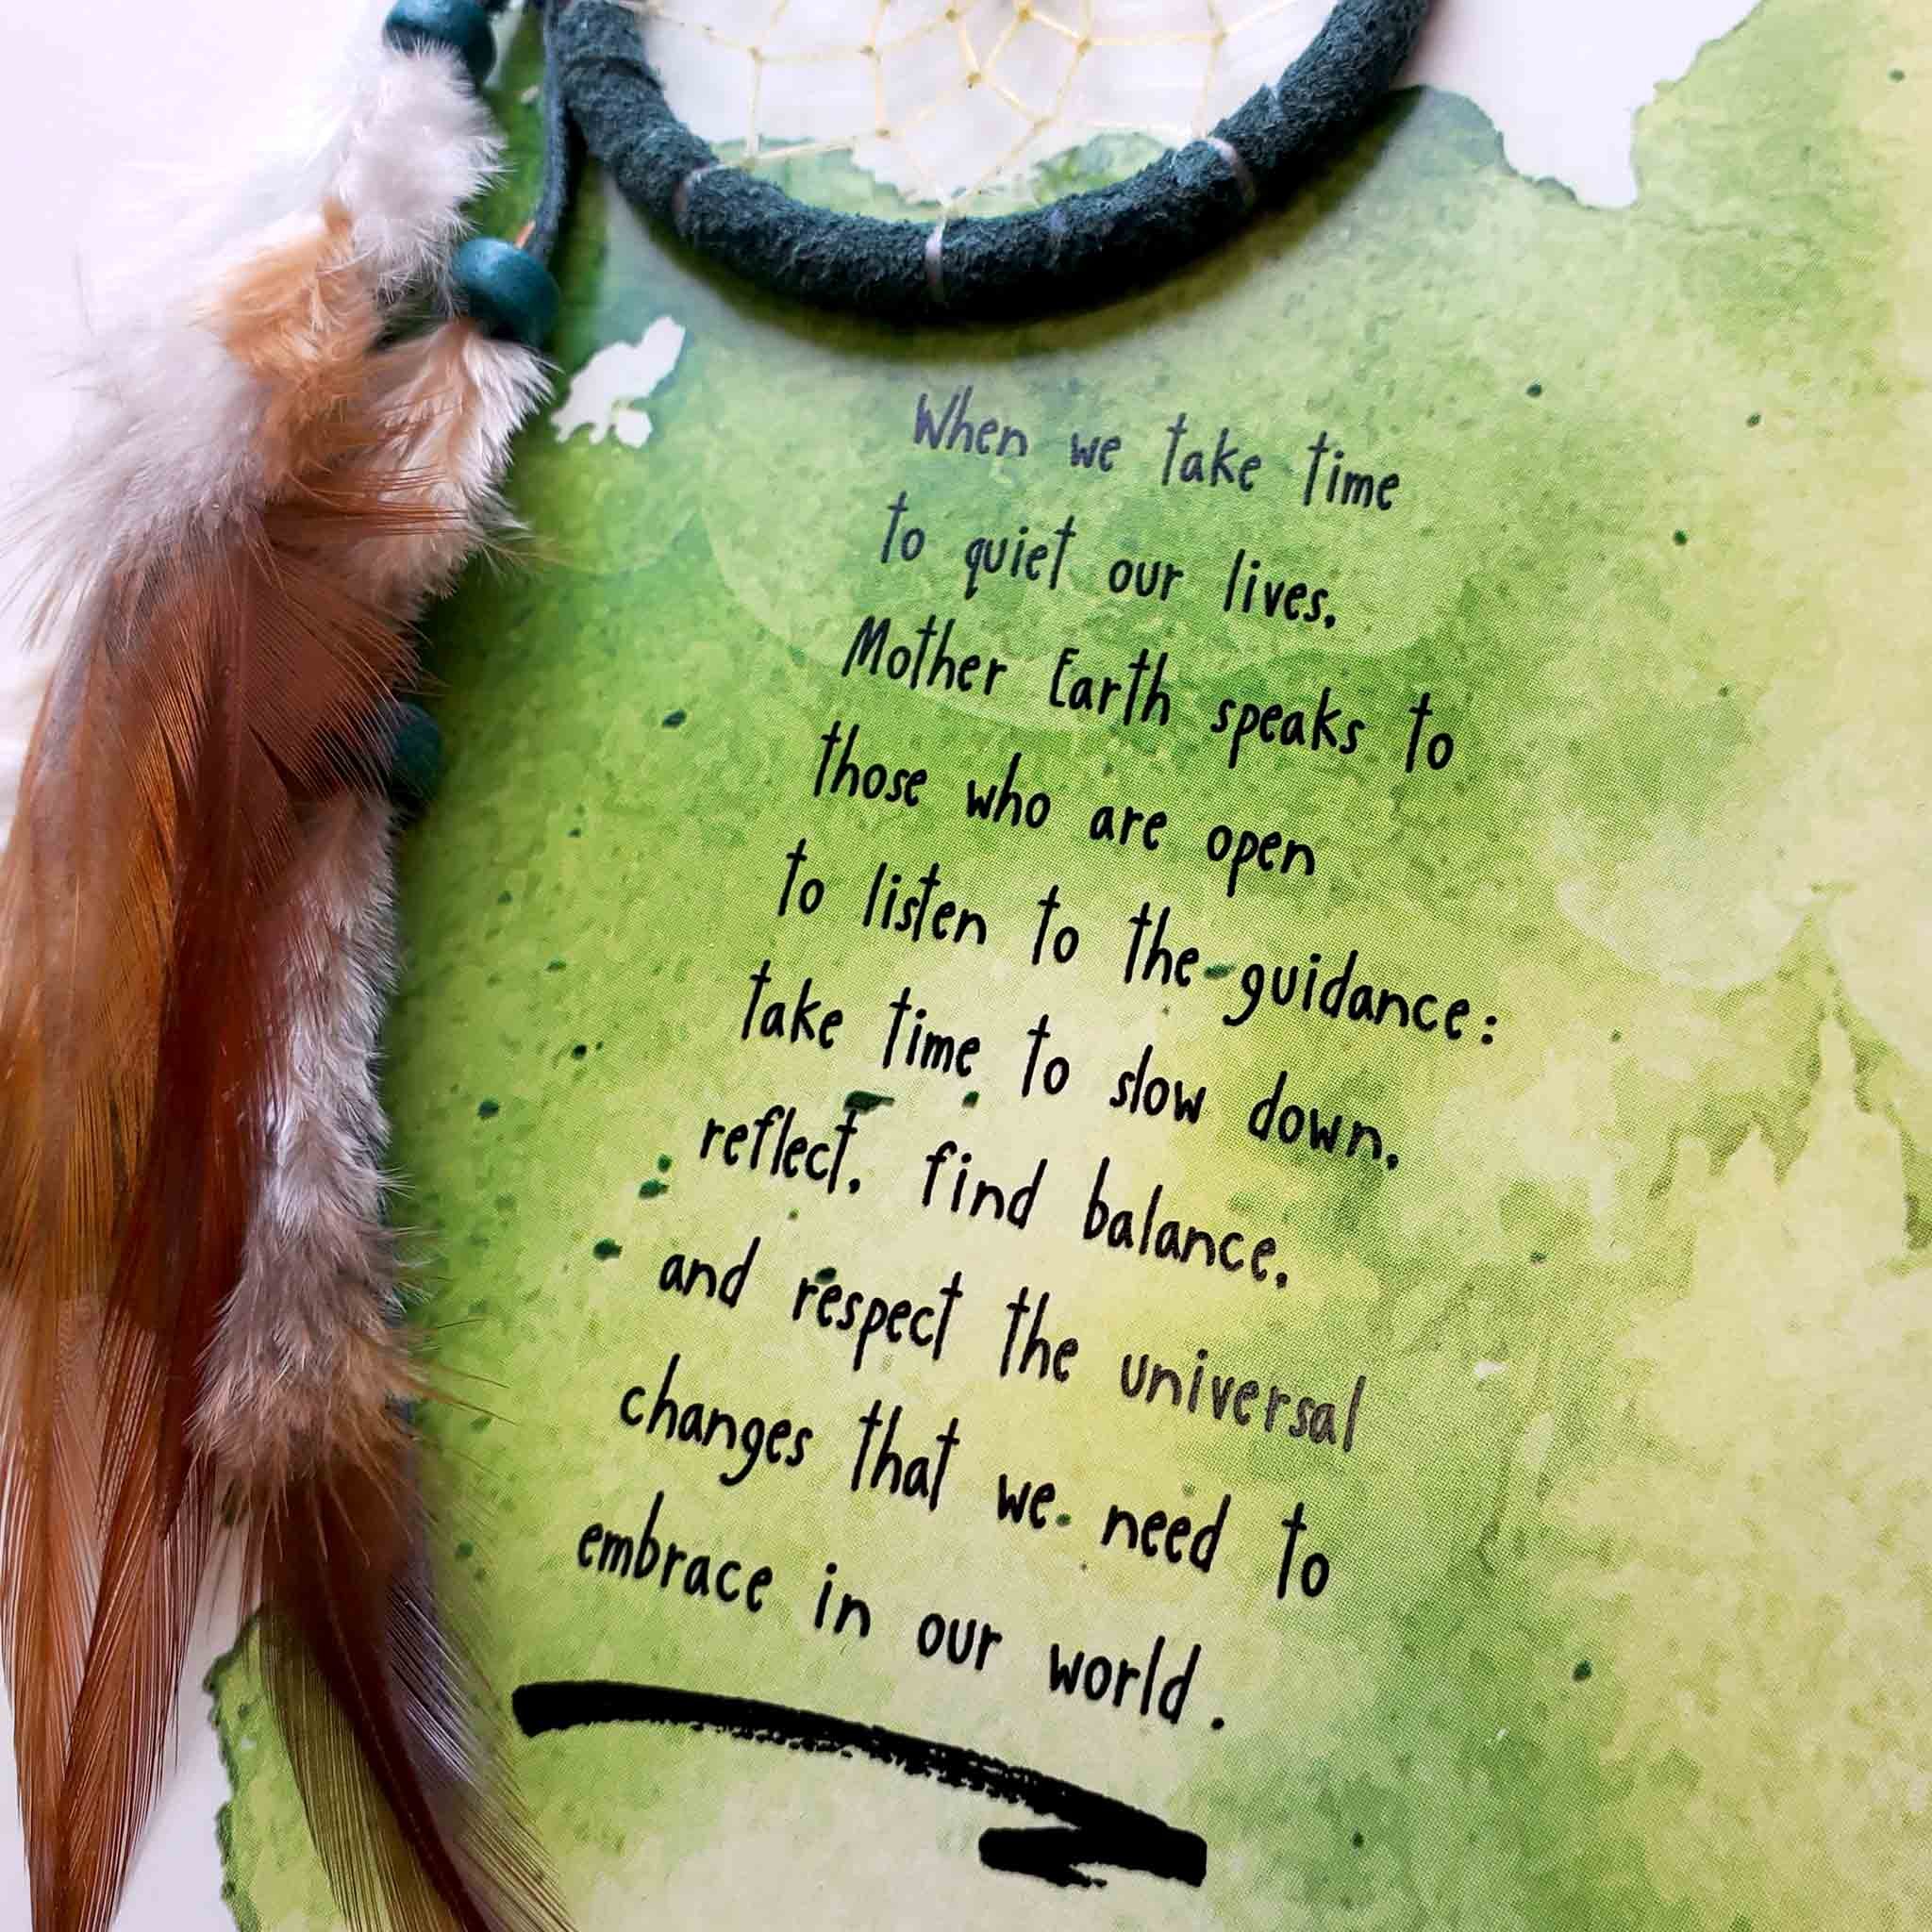 When we take time
to quiet our lives,
Mother Earth speaks to
those who are open
to listen to the guidance:
take time to slow down,
reflect, find balance,
and respect the universal
changes that we need to
embrace in our world.